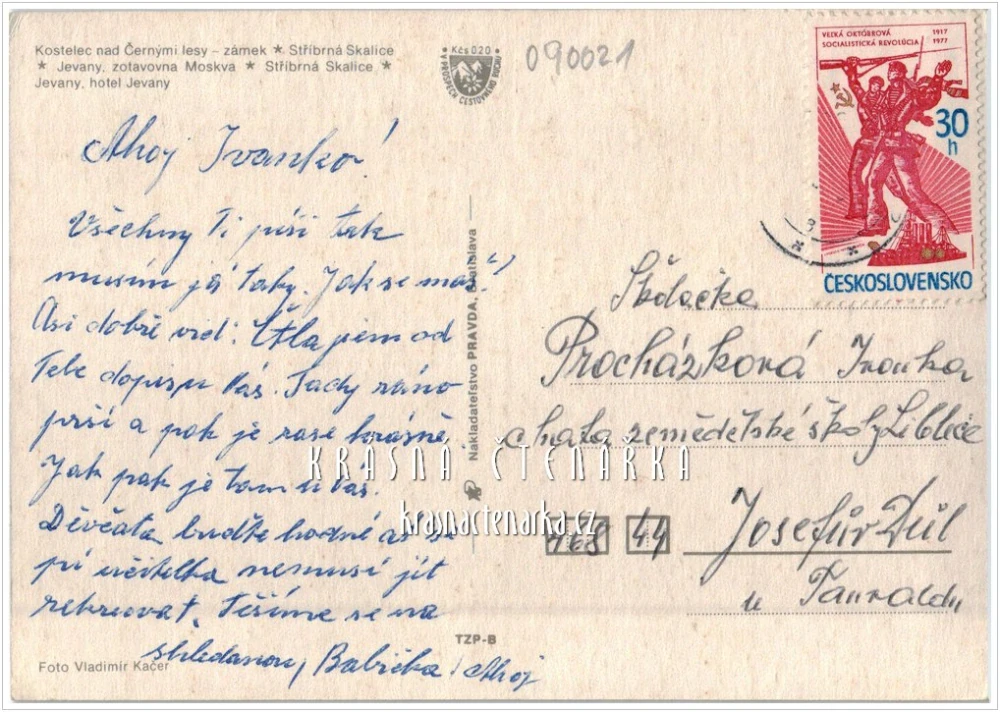 Kostelec nad Černými lesy – zámek ★ Stříbrná Skalice
★ Jevany, zotavovna Moskva ★ Stříbrná Skalice ★
Jevany, hotel Jevany
Kčs 0,20
V PROSPĚCH CESTOVNÉHO RUCHU
090021
VEĽKÁ OKTÓBROVÁ 1917
SOCIALISTICKÁ REVOLÚCIA 1977
30
h
ČESKOSLOVENSKO
Ahoj Ivanko!
Všechny Ti píší tak
musím já taky. Jak se máš?
Asi dobře viď. Četla jsem od
Tebe dopisu Vás. Tady ráno
prší a pak je zase krásně.
Jak pak je tam u Vás.
Děvčata buďte hodné ať
pí učitelka nemusí jít
rekreovat. Těšíme se na
shledanou, Babička! Ahoj
Nakladateľstvo PRAVDA, Bratislava
Školačka
Procházková Ivanka
chata zemědělské školy Liblice
468 44 Josefův Důl
u Tanvaldu
KRÁSNÁ ČTENÁŘKA
krasnactenarka.cz
TZP-B
Foto Vladimír Kačer